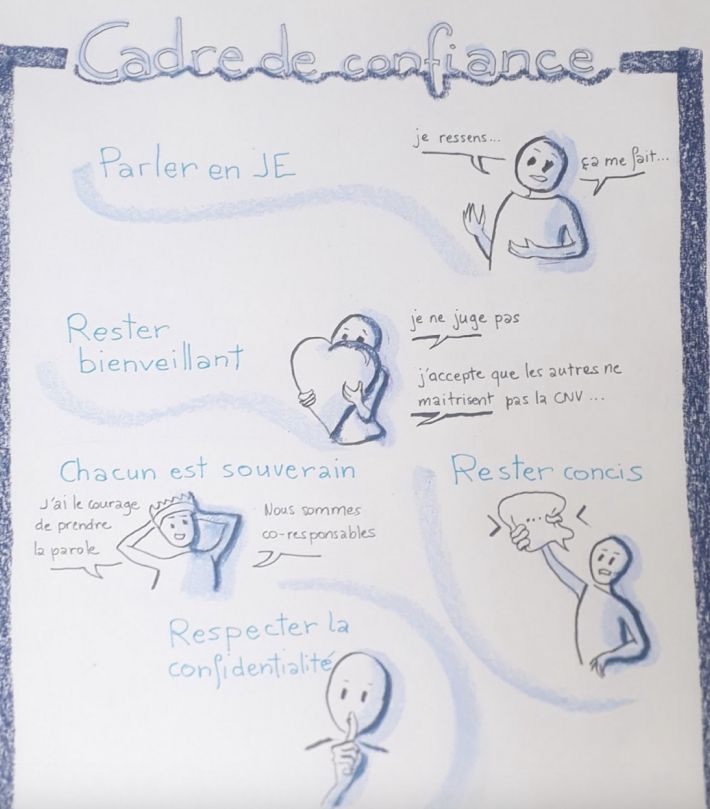 Cadre de confiance
Parler en JE
je ressens...
ça me fait...
Rester
bienveillant
je ne juge pas
j'accepte que les autres ne
maitrisent pas la CNV...
Chacun est souverain
J'ai le courage
de prendre
la parole
Nous sommes
co-responsables
Rester concis
...
Respecter la
confidentialité